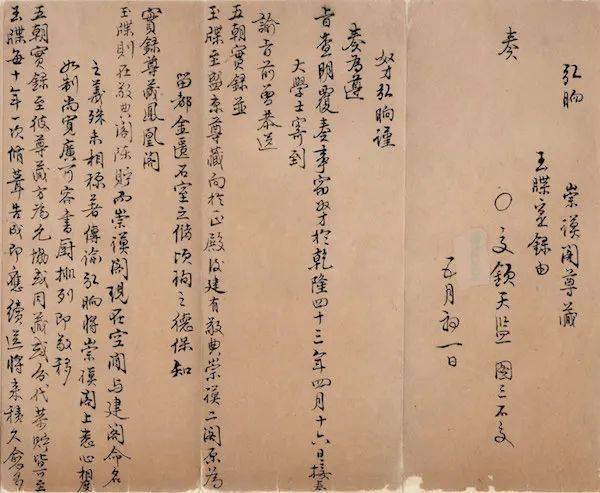 弘晌 崇謨閣尊藏
玉牒實錄由
奏
五月初一日
奴才弘晌謹
奏為遵
旨查明覆奏事竊奴才於乾隆四十三年四月十六日接奉
大學士寄到
諭旨前曾恭送
五朝實錄並
玉牒至盛京尊藏向於正殿後建有敬典崇謨二閣原為
留都金匱石室之備頃詢之德保知
實錄尊藏鳳凰閣
玉牒則在敬典閣存貯而崇謨閣現在空閒與建閣命名
之義殊未相稱著傳諭弘晌將崇謨閣上悉心相度
如制尚寬廣可容書厨排列即敬移
五朝實錄至彼尊藏方為允協或同藏或分代恭貯皆可至
玉牒每十年一次脩葺告成即應續送將來積久愈多